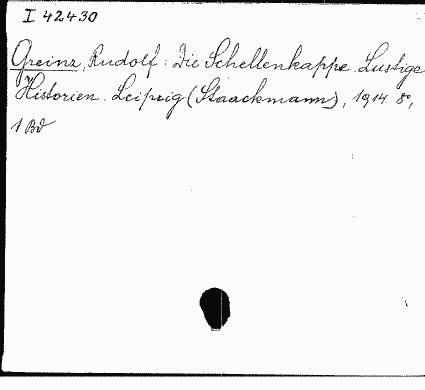 I 42430
Greinz, Rudolf: Die Schellenkappe. Lustige
Historien. Leipzig (Staackmann), 1914. 8°,
1 Bd